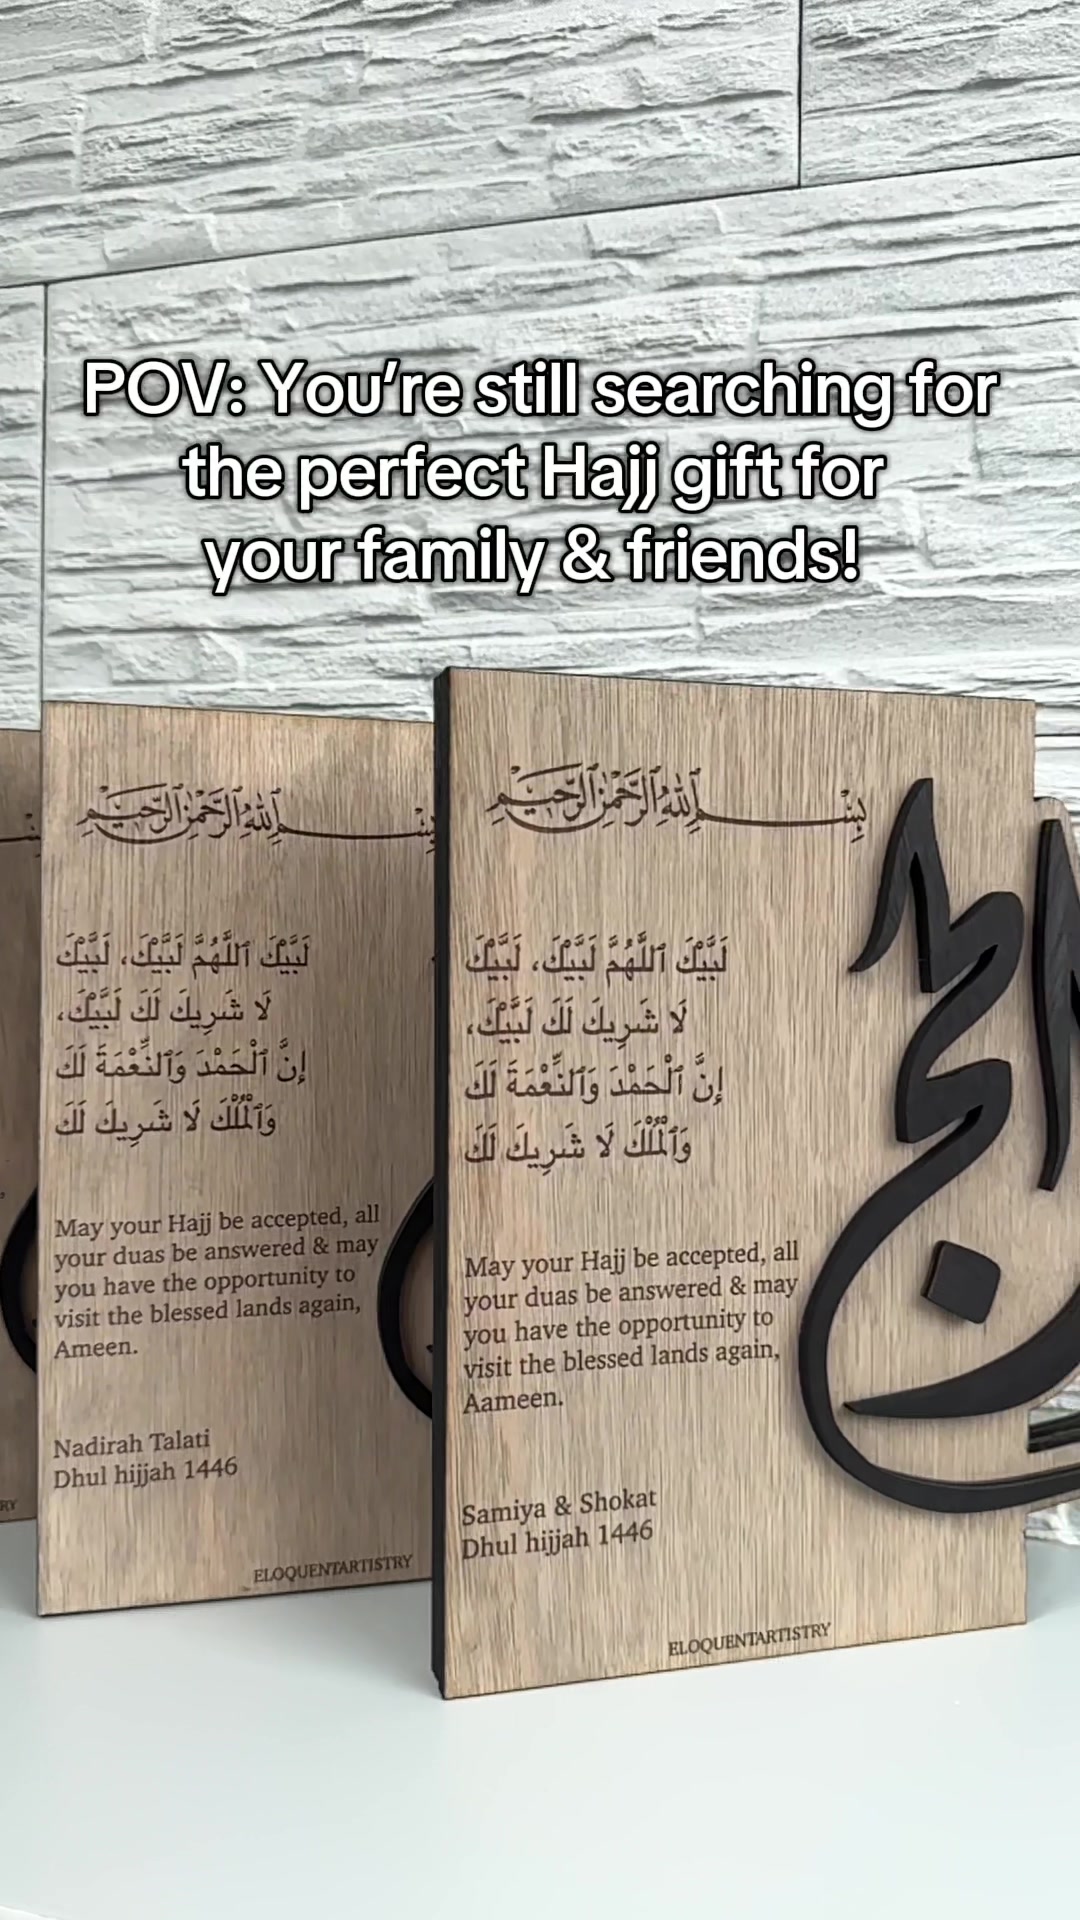 POV: You’re still searching for
the perfect Hajj gift for
your family & friends!
بِسْمِ ٱللَّهِ ٱلرَّحْمَٰنِ ٱلرَّحِيمِ
لَبَّيْكَ ٱللَّهُمَّ لَبَّيْكَ، لَبَّيْكَ
لَا شَرِيكَ لَكَ لَبَّيْكَ،
إِنَّ ٱلْحَمْدَ وَٱلنِّعْمَةَ لَكَ
وَٱلْمُلْكَ لَا شَرِيكَ لَكَ
May your Hajj be accepted, all
your duas be answered & may
you have the opportunity to
visit the blessed lands again,
Ameen.
Nadirah Talati
Dhul hijjah 1446
ELOQUENTARTISTRY
بِسْمِ ٱللَّهِ ٱلرَّحْمَٰنِ ٱلرَّحِيمِ
لَبَّيْكَ ٱللَّهُمَّ لَبَّيْكَ، لَبَّيْكَ
لَا شَرِيكَ لَكَ لَبَّيْكَ،
إِنَّ ٱلْحَمْدَ وَٱلنِّعْمَةَ لَكَ
وَٱلْمُلْكَ لَا شَرِيكَ لَكَ
May your Hajj be accepted, all
your duas be answered & may
you have the opportunity to
visit the blessed lands again,
Aameen.
Samiya & Shokat
Dhul hijjah 1446
ELOQUENTARTISTRY